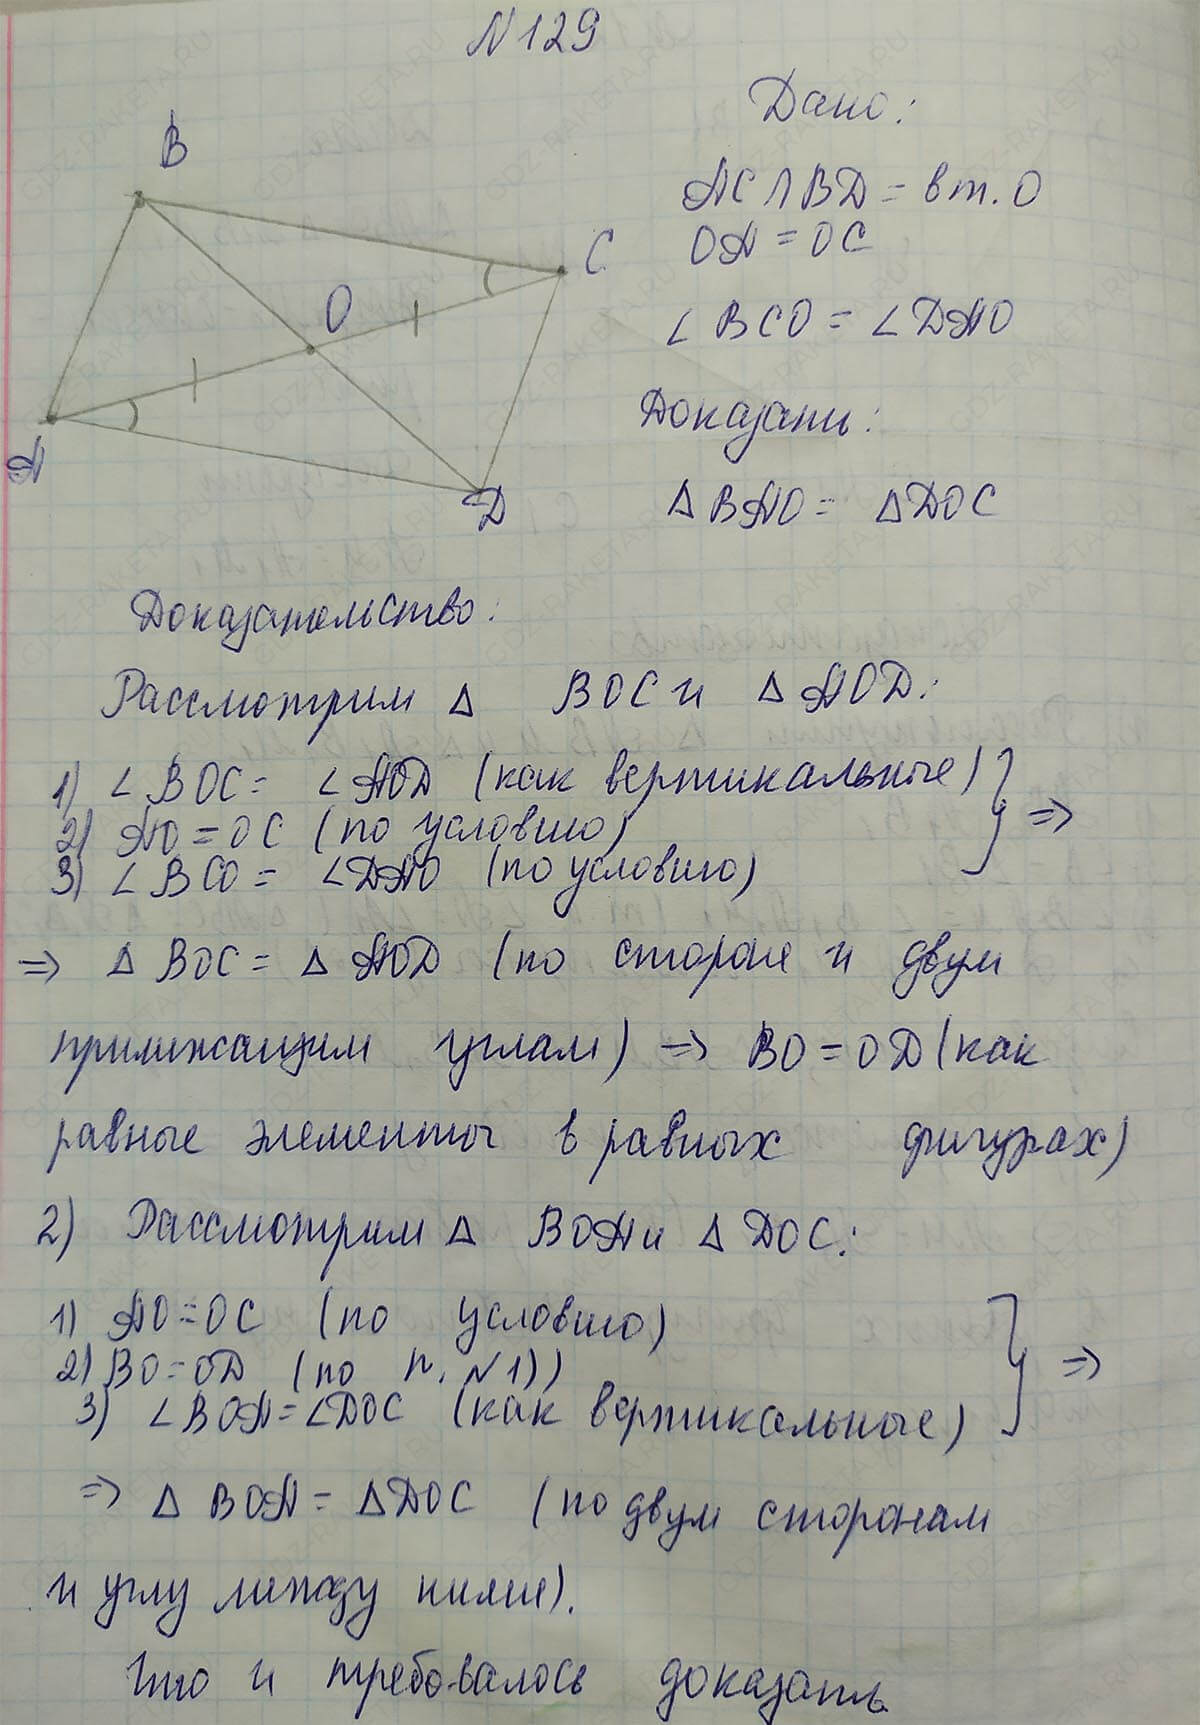 N129
Дано:
B
AC∩BD = в т. O
OA = OC
C
O
∠BCO = ∠DAO
Доказать:
A
D
ΔBAO = ΔDOC
Доказательство:
Рассмотрим Δ BOC и ΔAOD:
1) ∠BOC = ∠AOD (как вертикальные) } =>
2) AO = OC (по условию)
3) ∠BCO = ∠DAO (по условию)
=> ΔBOC = ΔAOD (по стороне и двум
прилижащим углам) => BO = OD (как
равные элементы в равных фигурах)
2) Рассмотрим Δ BOA и ΔDOC:
1) AO = OC (по условию)
2) BO = OD (по п. N1)) } =>
3) ∠BOA = ∠DOC (как вертикальные)
=> ΔBOA = ΔDOC (по двум сторонам
и углу между ними).
Что и требовалось доказать
GDZ-RAKETA.RU